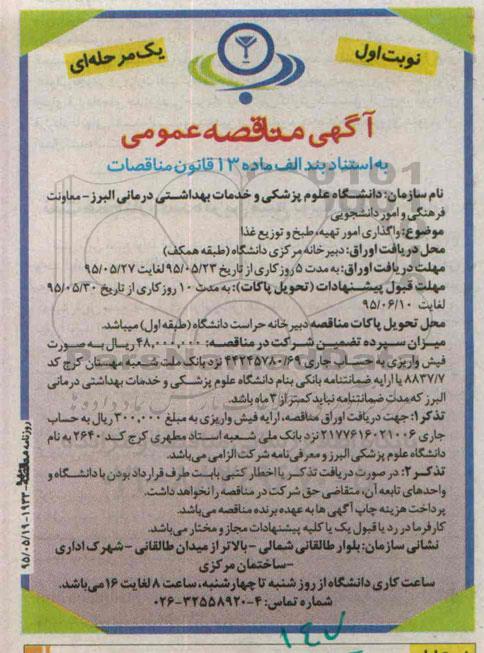 نوبت اول
یک مرحله‌ای
آگهی مناقصه عمومی
به استناد بند الف ماده ۱۳ قانون مناقصات
نام سازمان: دانشگاه علوم پزشکی و خدمات بهداشتی درمانی البرز - معاونت
فرهنگی و امور دانشجویی
موضوع: واگذاری امور تهیه، طبخ و توزیع غذا
محل دریافت اوراق: دبیرخانه مرکزی دانشگاه (طبقه همکف)
مهلت دریافت اوراق: به مدت ۵ روز کاری از تاریخ ۹۵/۰۵/۲۳ لغایت ۹۵/۰۵/۲۷
مهلت قبول پیشنهادات (تحویل پاکات): به مدت ۱۰ روز کاری از تاریخ ۹۵/۰۵/۳۰
لغایت ۹۵/۰۶/۱۰
محل تحویل پاکات مناقصه دبیرخانه حراست دانشگاه (طبقه اول) میباشد.
میزان سپرده تضمین شرکت در مناقصه: ۴۸,۰۰۰,۰۰۰ ریال به صورت
فیش واریزی به حساب جاری ۴۴۲۴۵۷۸۰/۶۹ نزد بانک ملت شعبه مهستان کرج کد
۸۸۳۷/۷ یا ارایه ضمانتنامه بانکی بنام دانشگاه علوم پزشکی و خدمات بهداشتی درمانی
البرز که مدت ضمانتنامه نباید کمتر از ۳ ماه باشد.
تذکر۱: جهت دریافت اوراق مناقصه، ارایه فیش واریزی به مبلغ ۳۰۰,۰۰۰ ریال به حساب
جاری ۲۱۷۷۶۱۶۰۲۱۰۰۶ نزد بانک ملی شعبه استاد مطهری کرج کد ۲۶۴۰ به نام
دانشگاه علوم پزشکی البرز و معرفی‌نامه شرکت الزامی می‌باشد.
تذکر۲: در صورت دریافت تذکر یا اخطار کتبی بابت طرف قرارداد بودن با دانشگاه و
واحدهای تابعه آن، متقاضی حق شرکت در مناقصه را نخواهد داشت.
پرداخت هزینه چاپ آگهی ها به عهده برنده مناقصه می‌باشد.
کارفرما در رد یا قبول یک یا کلیه پیشنهادات مجاز و مختار می‌باشد.
نشانی سازمان: بلوار طالقانی شمالی - بالاتر از میدان طالقانی - شهرک اداری
-ساختمان مرکزی
ساعت کاری دانشگاه از روز شنبه تا چهارشنبه، ساعت ۸ لغایت ۱۶ می‌باشد.
شماره تماس: ۴-۳۲۵۵۸۹۲۰-۰۲۶
روزنامه مناقصه - ۱۹۳۳ - ۹۵/۰۵/۱۹
۱۴۷